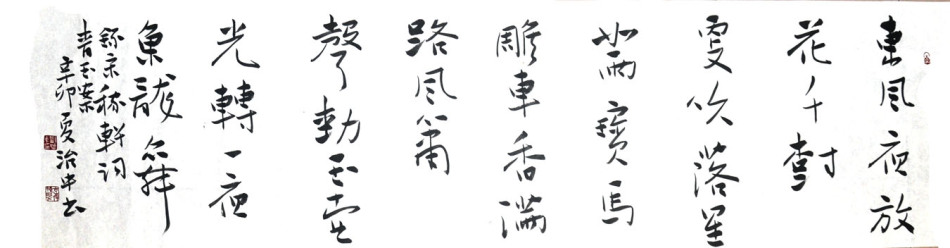 東風夜放
花千樹
更吹落星
如雨寶馬
雕車香滿
路風簫
聲動玉壺
光轉一夜
魚龍舞
錄宋稼軒詞
青玉案
辛卯夏治中书